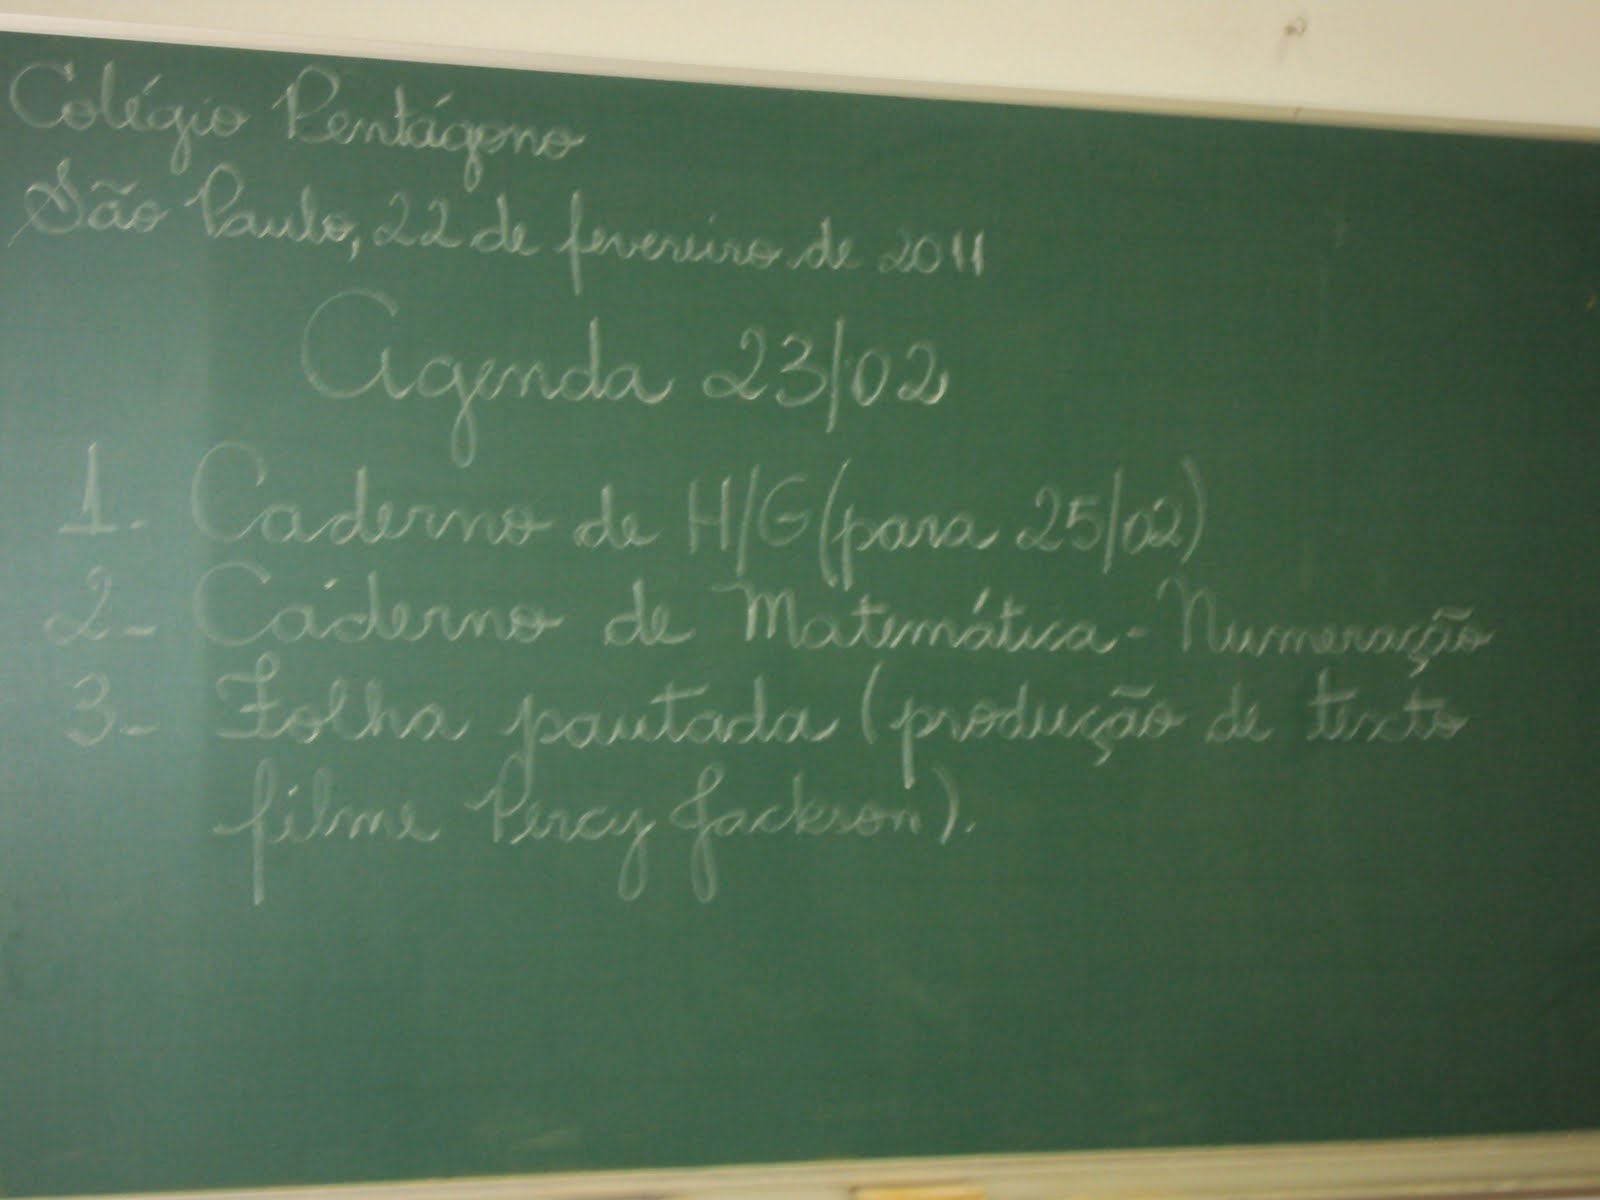 Colégio Pentágono
São Paulo, 22 de fevereiro de 2011
Agenda 23/02
1. Caderno de H/G (para 25/02)
2- Caderno de Matemática - Numeração
3- Folha pautada (produção de texto
filme Percy Jackson).